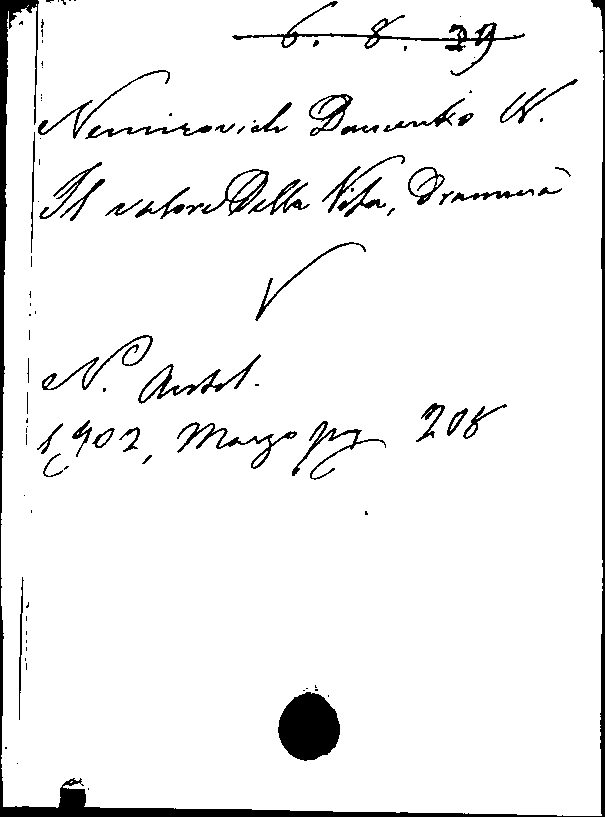 6. 8. 39
Nemirovich Dancenko W.
Il valore Della Vita, Dramma
N. Antol.
1902, Marzo pg 208